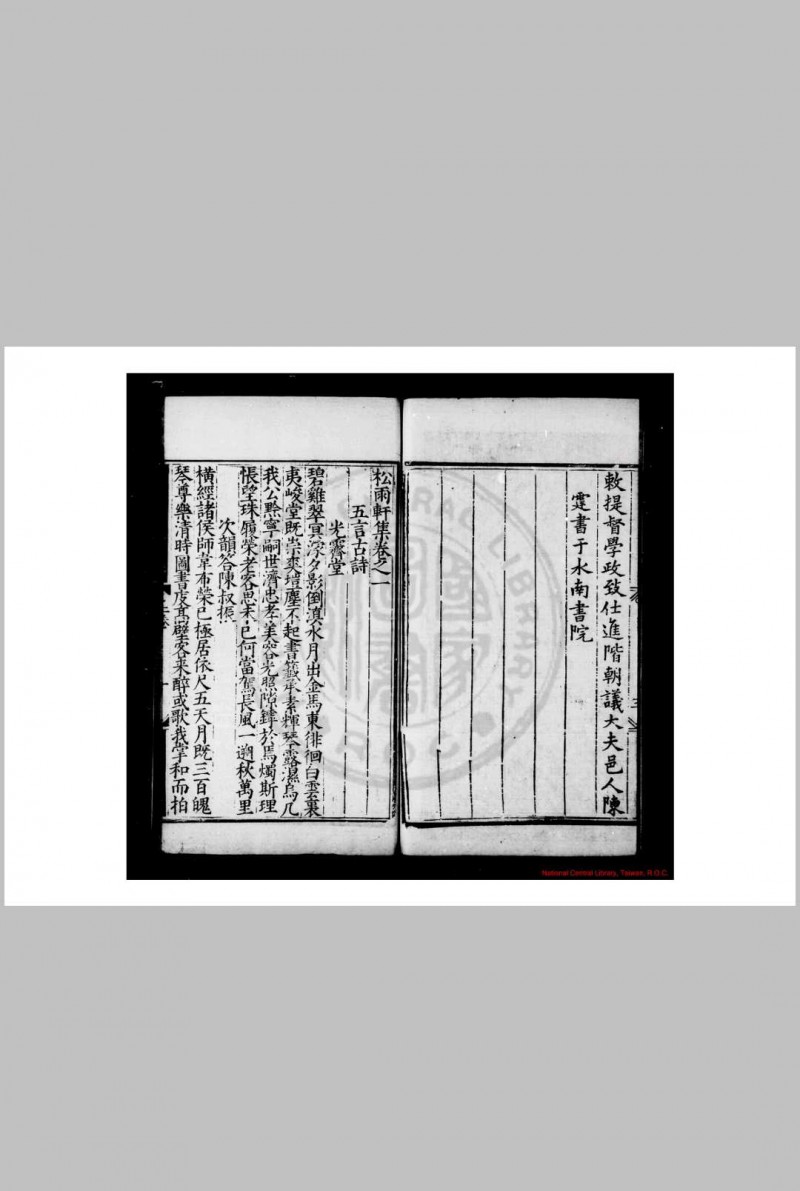 敕提督學政致仕進階朝議大夫邑人陳
霆書于水南書院
三
松雨軒集卷之一
五言古詩
光霽堂
碧雞翠冥濛夕影倒滇水月出金馬東徘徊白雲裏
夷峻堂既崇爽塏塵不起書籤承素輝琴露濕烏几
我公黔寧嗣世濟忠孝美容光照隙罅於焉燭斯理
悵望珠履榮老客思未已何當駕長風一遡秋萬里
次韻答陳叔振
橫經諸侯師韋布榮已極居依尺五天月既三百魄
琴尊樂清時圖書度高壁客來醉或歌我掌和而拍
National Central Library, Taiwan, R.O.C.